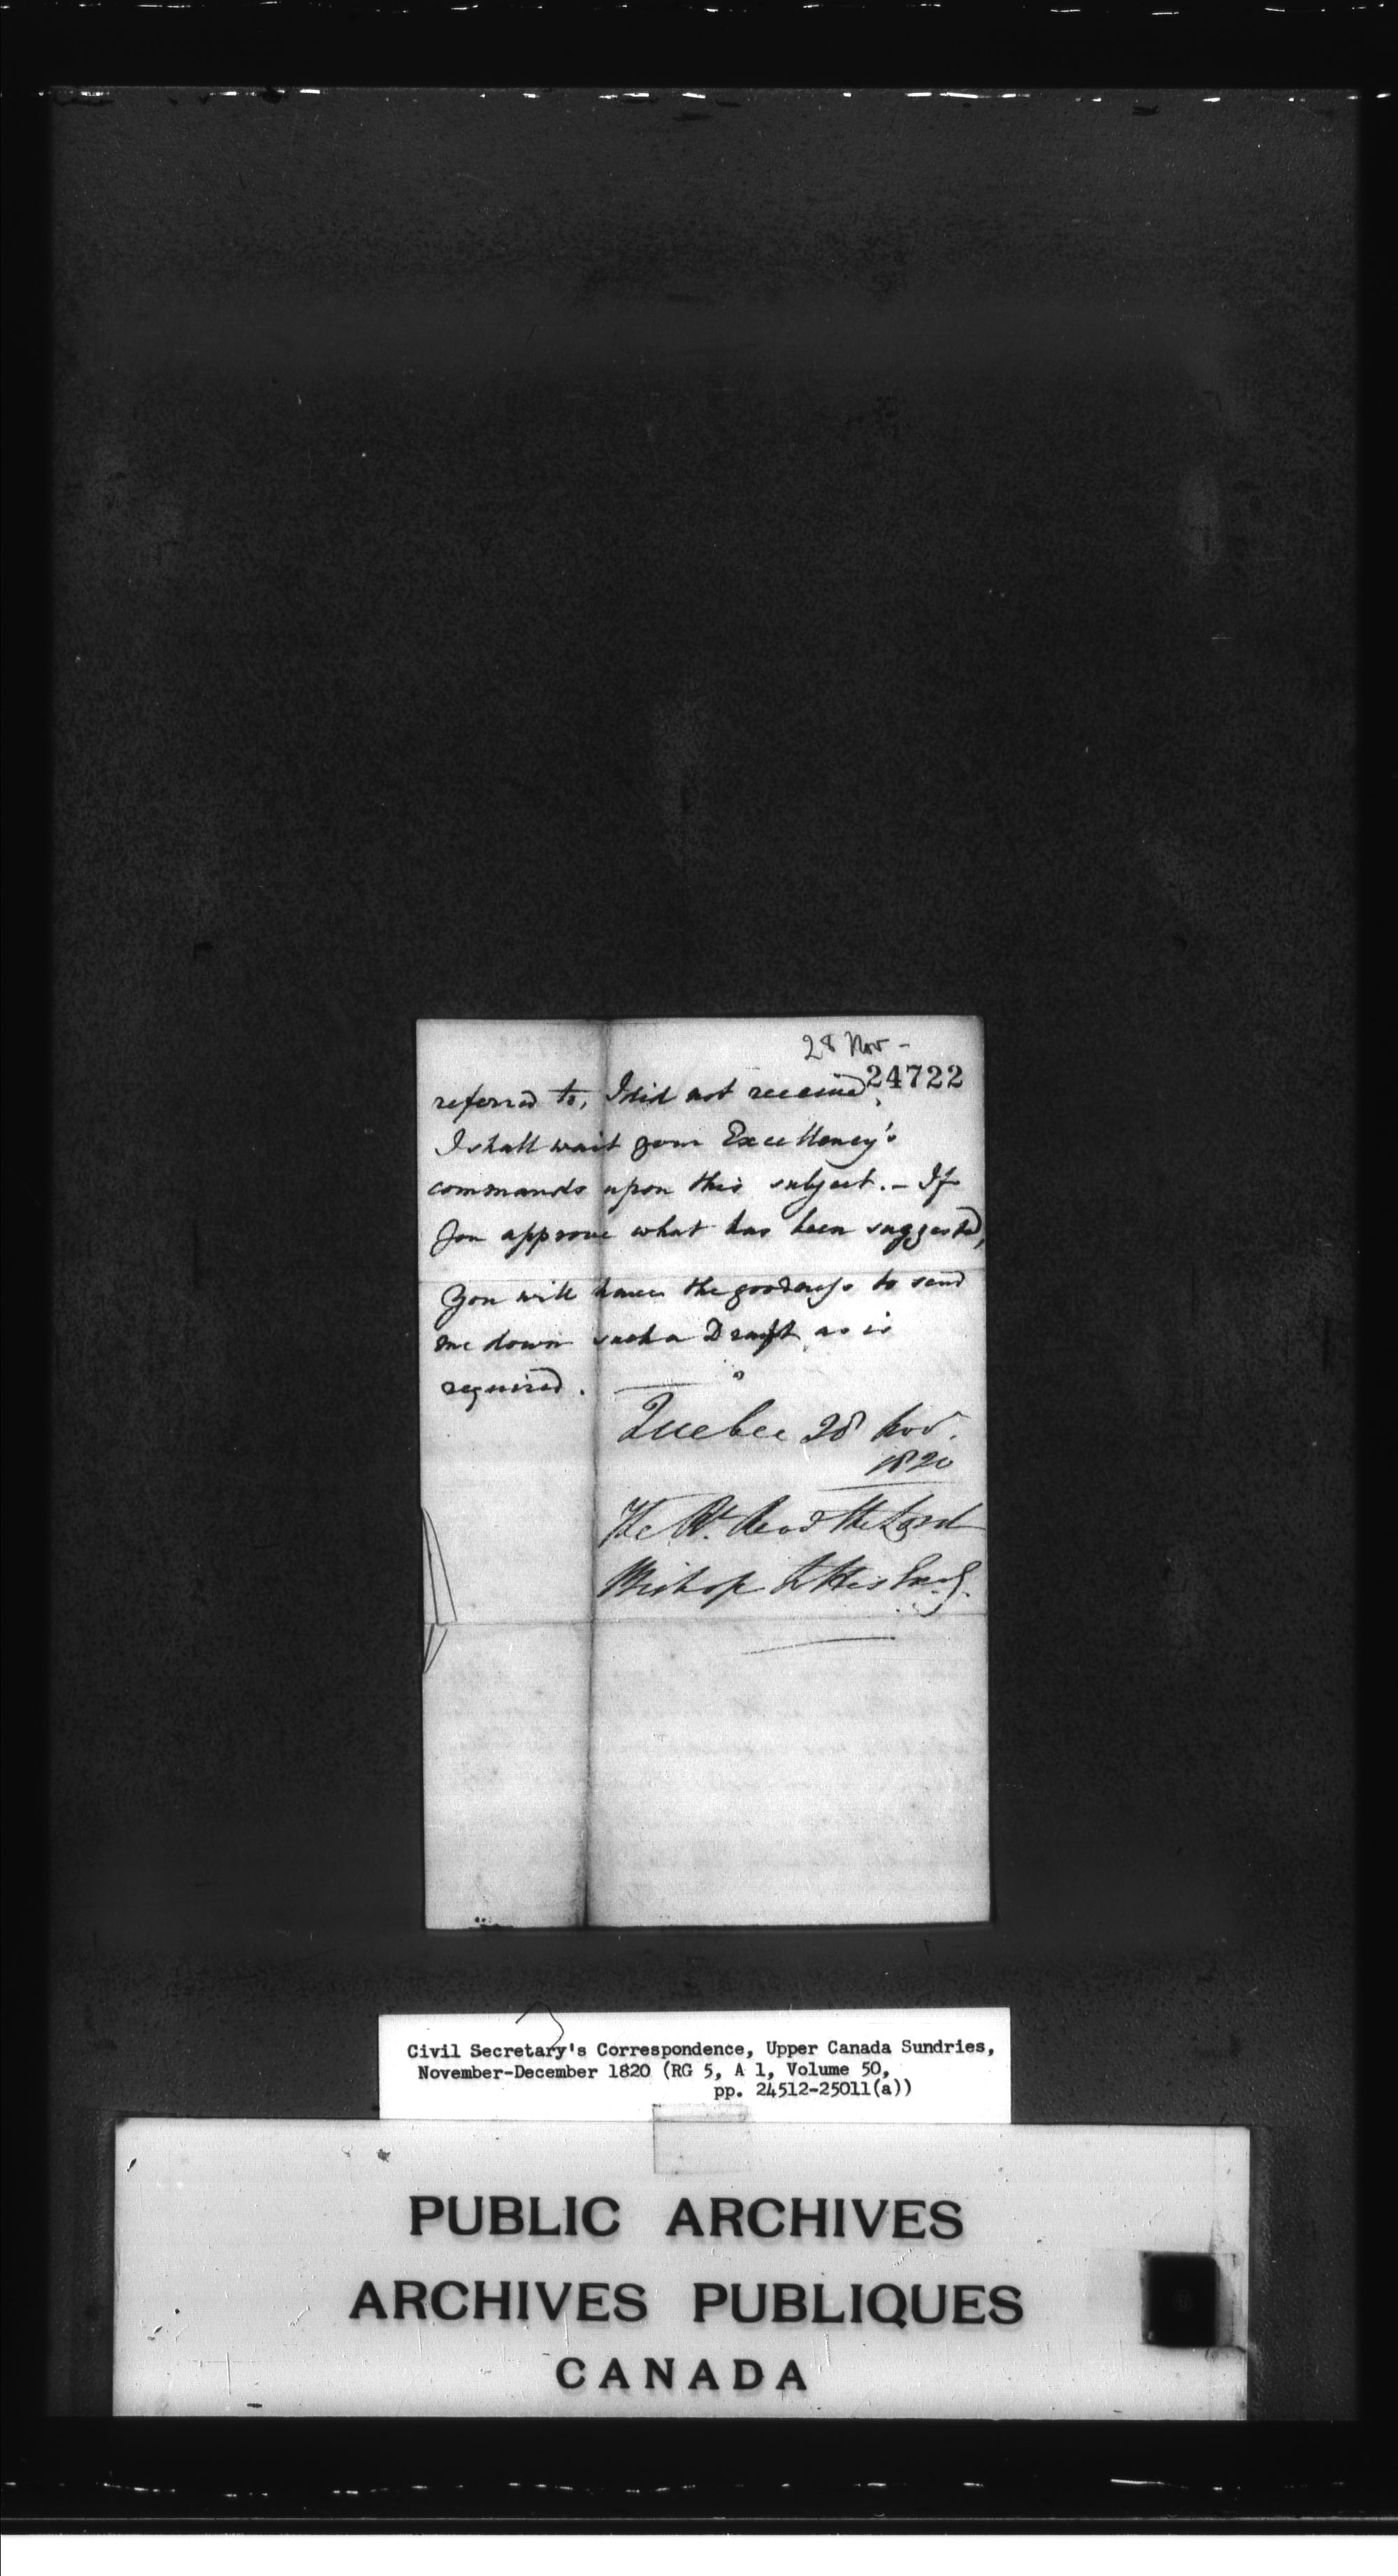 28 Nov -
24722
referred to, I did not receive.
I shall wait your Excellency's
commands upon this subject. - If
you approve what has been suggested,
you will have the goodness to send
me down such a Draft as is
required.
Quebec 28 Nov.
1820
The Rt. Revd the Lord
Bishop to His Excy.
Civil Secretary's Correspondence, Upper Canada Sundries,
November-December 1820 (RG 5, A 1, Volume 50,
pp. 24512-25011(a))
PUBLIC ARCHIVES
ARCHIVES PUBLIQUES
CANADA